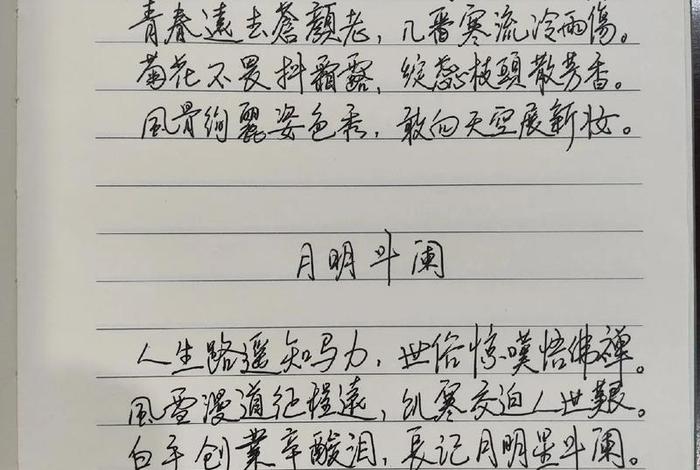 青春遠去蒼顏老，几番寒流冷雨傷。
菊花不畏抖霜露，綻蕊枝頭散芳香。
風骨絢麗姿色秀，敢向天空展新妆。
月明斗阑
人生路遥知马力，世俗惊嘆悟佛禪。
風雪漫道征程遠，饥寒交迫人世艱。
白手创業辛酸泪，長记月明星斗阑。